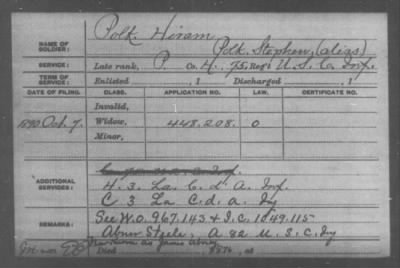 Polk Hiram
NAME OF SOLDIER:
Polk, Stephen, (alias)
SERVICE: Late rank, P. Co. H., 75. Reg't U.S.C. Inf.
TERM OF SERVICE: Enlisted , 1 Discharged , 1
DATE OF FILING. CLASS. APPLICATION NO. LAW. CERTIFICATE NO.
Invalid,
1890 Oct. 7. Widow, 448.208. O
Minor,
ADDITIONAL SERVICES:
H. 3. La. C. d' A. Inf.
C. 3 La C. d. a. Iny
REMARKS: See W.O. 967.143 & I.C. 1049.115
Abner Steele, A 82 U.S.C. Iny
known as James
Died , at